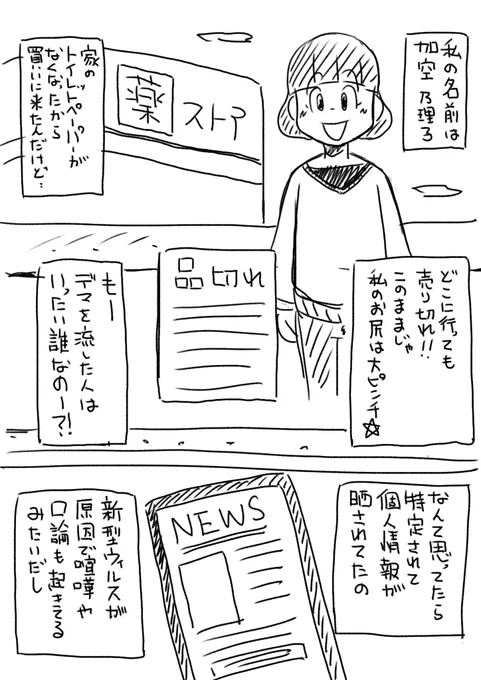 私の名前は
加空 乃理子
家の
トイレットペーパーが
なくなったから
買いに来たんだけど…
薬
ストア
どこに行っても
売り切れ!!
このままじゃ
私のお尻は大ピンチ☆
品切れ
もー
デマを流した人は
いったい誰なのー?!
なんて思ってたら
特定されて
個人情報が
晒されてたの
NEWS
新型ウィルスが
原因で喧嘩や
口論も起きてる
みたいだし